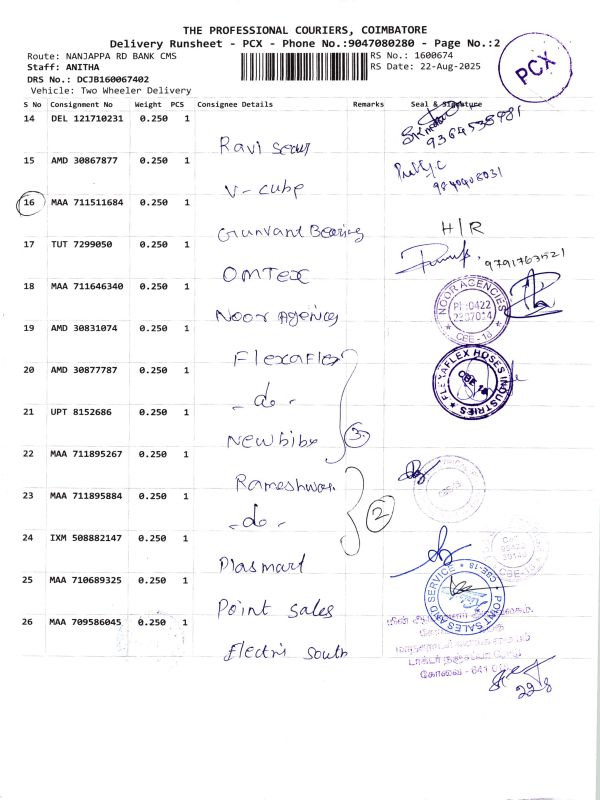 THE PROFESSIONAL COURIERS, COIMBATORE
Delivery Runsheet - PCX - Phone No.:9047080280 - Page No.:2
Route: NANJAPPA RD BANK CMS
RS No.: 1600674
Staff: ANITHA
RS Date: 22-Aug-2025
DRS No.: DCJB160067402
Vehicle: Two Wheeler Delivery
PCX
S No Consignment No Weight PCS Consignee Details Remarks Seal & Signature
14 DEL 121710231 0.250 1
9364538981
Ravi
15 AMD 30867877 0.250 1
9840408031
V-cube
16 MAA 711511684 0.250 1
Gunvant Bearing H/R
17 TUT 7299050 0.250 1
9791763521
OMTEX
18 MAA 711646340 0.250 1
NOOR AGENCIES
CBE-18
Noor Agencies
19 AMD 30831074 0.250 1
Flexaflex
FLEXAFLEX HOSES INDUSTRIES
CBE-18
20 AMD 30877787 0.250 1
- do -
21 UPT 8152686 0.250 1
Newbibx 3
22 MAA 711895267 0.250 1
Rameshwar
23 MAA 711895884 0.250 1
- do - 2
24 IXM 508882147 0.250 1
CBE-18
Plasmart
25 MAA 710689325 0.250 1
POINT SALES AND SERVICE
Point Sales
26 MAA 709586045 0.250 1
டாக்டர் நஞ்சப்பா ரோடு
கோவை - 641
Electri South
22/8